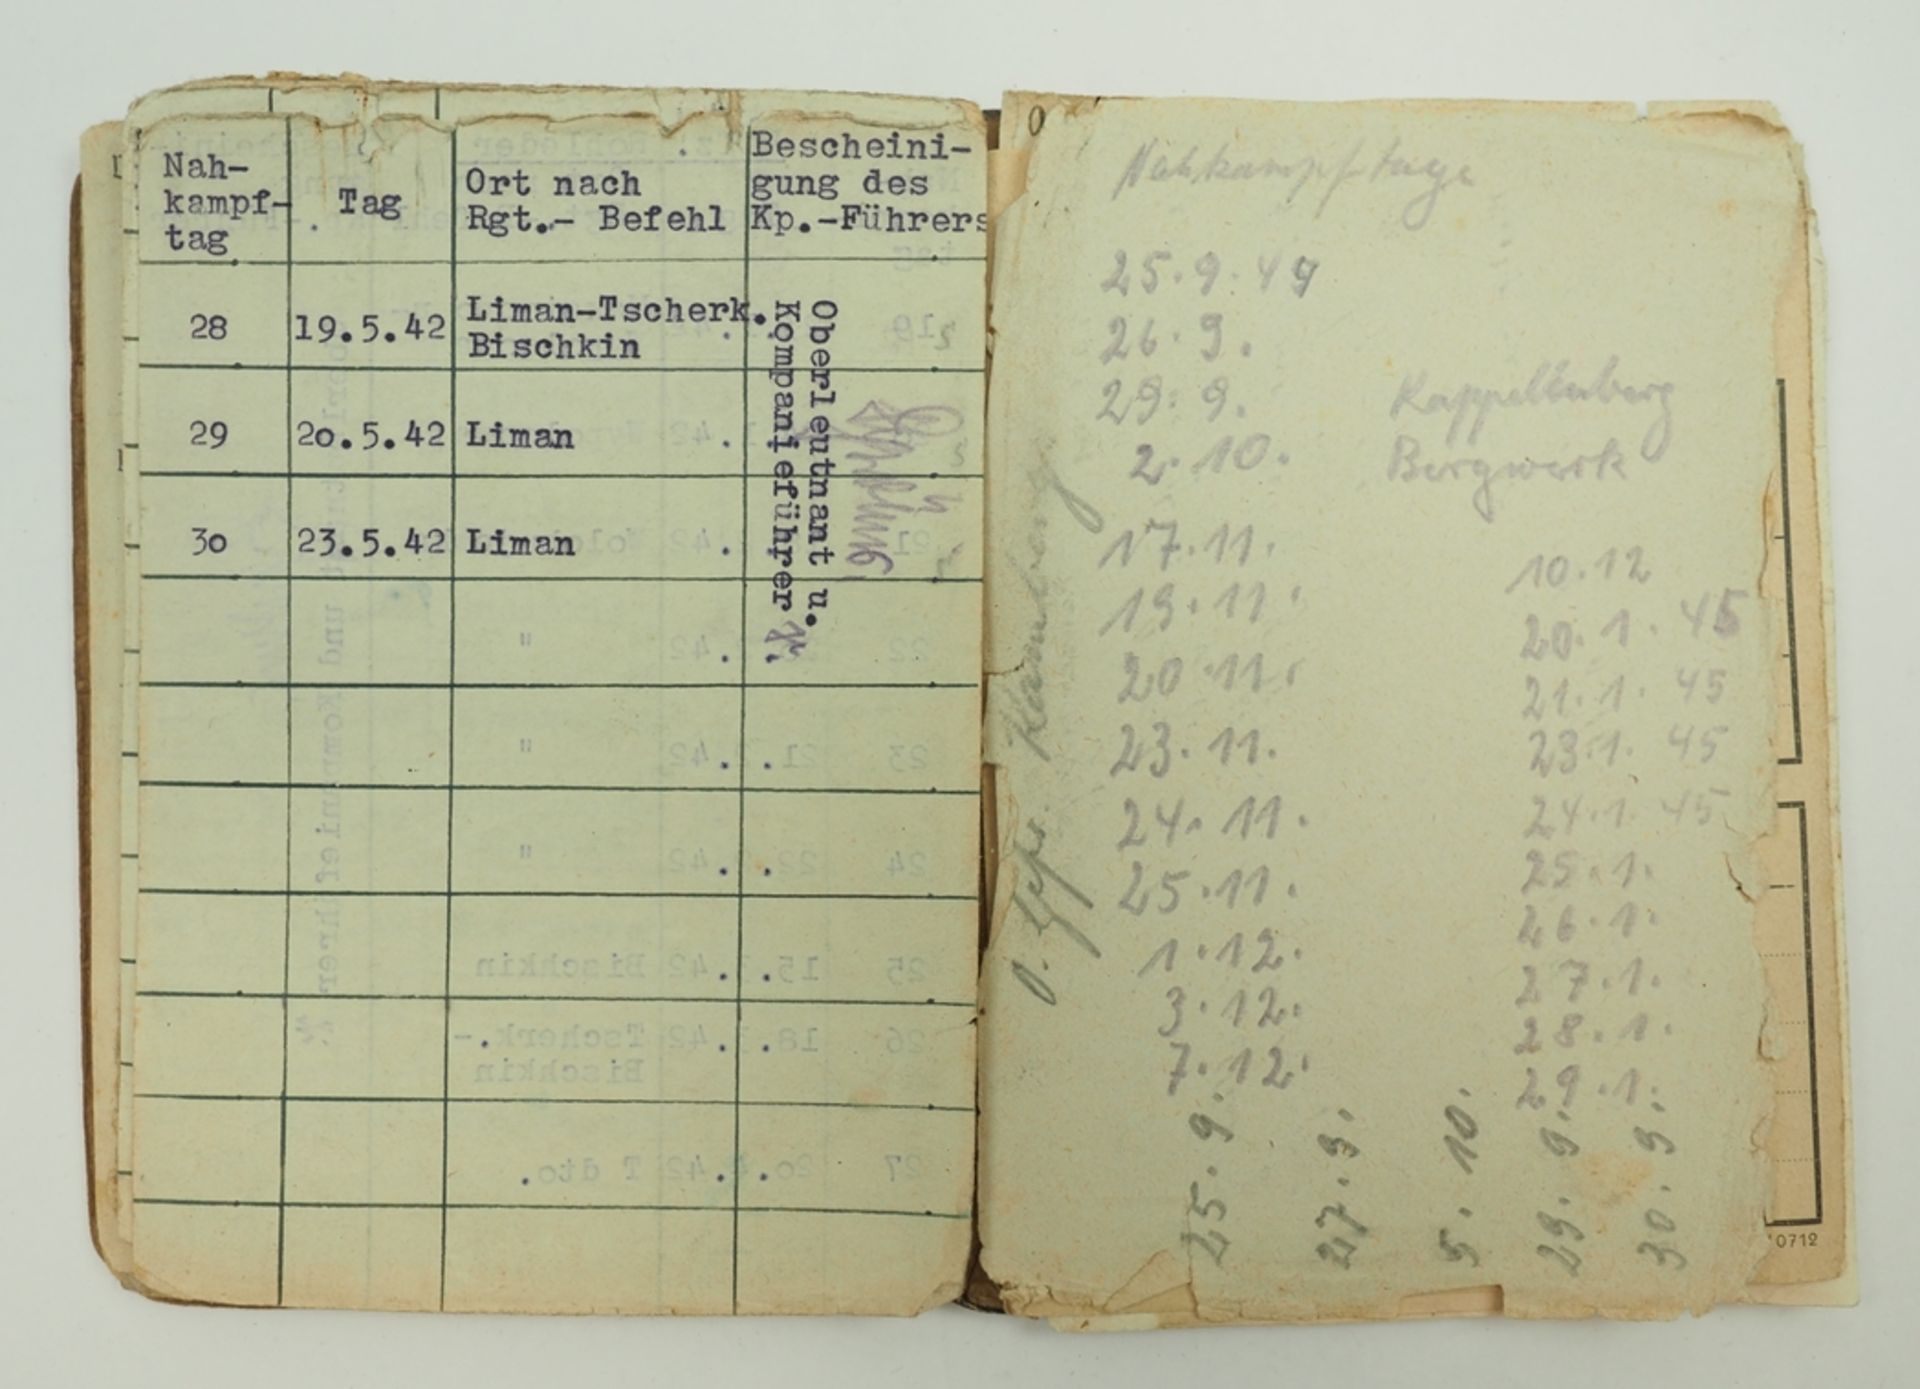 Nah-
kampf-
tag
Tag
Ort nach
Rgt.- Befehl
Bescheini-
gung des
Kp.-Führers
28 19.5.42 Liman-Tscherk.
Bischkin
29 20.5.42 Liman
30 23.5.42 Liman
Oberleutnant u.
Kompanieführer
Nahkampftage
25.9.44
26.9.
29.9. Kappellenberg
2.10. Bergwerk
17.11.
19.11.
20.11.
23.11.
24.11.
25.11.
1.12.
3.12.
7.12.
10.12
20.1.45
21.1.45
23.1.45
24.1.45
25.1.
26.1.
27.1.
28.1.
29.1.
25.9.
27.9.
5.10.
29.9.
30.9.
O. Gefr.
0712